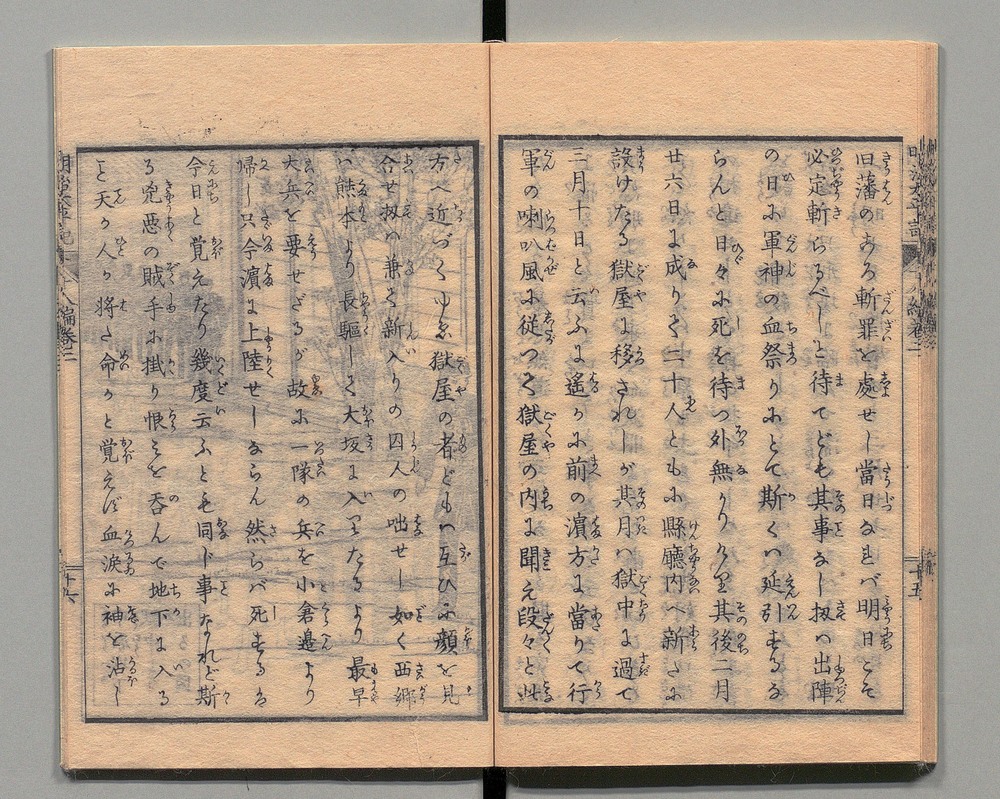 旧藩のある斬罪を處せし當日なれば明日こそ
必定斬らるべしと待てども其事なし扨は出陣
の日に軍神の血祭りにとて斯くは延引するな
らんと日々に死を待つ外無かりける其後二月
廿六日に成りて二十人ともに縣廳内へ新たに
設けたる獄屋に移されしが其月は獄中に過て
三月十日と云ふに遙かに前の濵方に當りて行
軍の喇叭風に従つて獄屋の内に聞え段々と此
方へ近づくゆゑ獄屋の者どもは互ひに顔を見
合せ扨は兼て新入りの囚人の咄せし如く西郷
は熊本より長驅して大坂に入りたるより最早
大兵を要せざるが故に一隊の兵を小倉邉より
帰し只今濵に上陸せしならん然らば死するは
今日と覚えたり幾度云ふとも同じ事なれど斯
る兇悪の賊手に掛り恨みを呑んで地下に入る
こと天か人か将た命かと覚えず血涙に袖を沾し
八編巻三
十六
十五